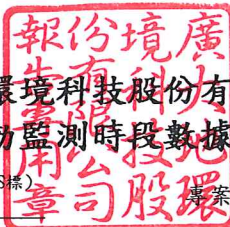 環境科技股份有
動監測時段數據
S標)
專案
廣 地環
境科技股
份有限公司
報告專用章